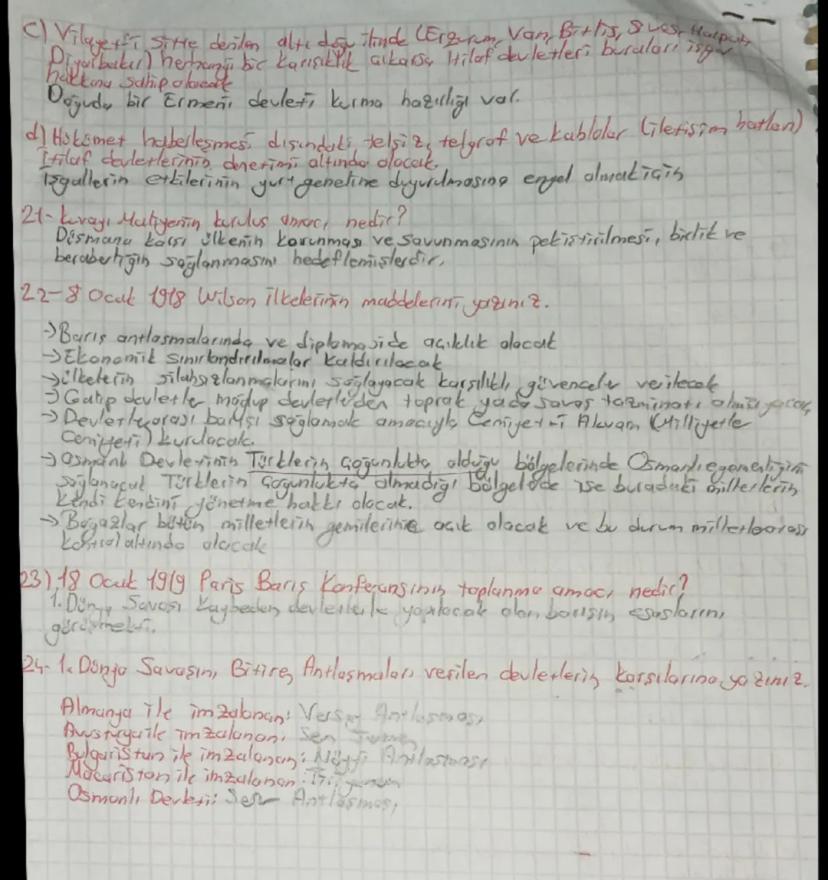 c) Vilayet-i Sitte denilen altı doğu ilinde (Erzurum, Van, Bitlis, Sivas, Harput,
Diyarbakır) herhangi bir karışıklık çıkarsa İtilaf devletleri buraları işgal
hakkına sahip olacak
Doğuda bir Ermeni devleti kurma hazırlığı var.
d) Hükümet haberleşmesi dışındaki telsiz, telgraf ve kablolar (iletişim hatları)
İtilaf devletlerinin denetimi altında olacak.
İşgallerin etkilerinin yurt geneline duyurulmasına engel olmak için
21- Kuvayı Milliyenin kuruluş amacı nedir?
Düşmana karşı ülkenin korunması ve savunmasının pekiştirilmesi, birlik ve
beraberliğin sağlanmasını hedeflemişlerdir.
22- 8 Ocak 1918 Wilson ilkelerinin maddelerini yazınız.
→ Barış antlaşmalarında ve diplomaside açıklık olacak
→ Ekonomik sınırlandırılmalar kaldırılacak
→ Ülkelerin silahsızlanmalarını sağlayacak karşılıklı güvenceler verilecek
→ Galip devletler mağlup devletlerden toprak yada savaş tazminatı almayacak
→ Devletlerarası barışı sağlamak amacıyla Cemiyet-i Akvam (Milletler
Cemiyeti) kurulacak.
→ Osmanlı Devletinin Türklerin çoğunlukta olduğu bölgelerinde Osmanlı egemenliğini
sağlanacak Türklerin çoğunlukta olmadığı bölgelerde ise buradaki milletlerin
kendi kendini yönetme hakkı olacak.
→ Boğazlar bütün milletlerin gemilerine açık olacak ve bu durum milletlerarası
kontrol altında olacak
23) 18 Ocak 1919 Paris Barış Konferansının toplanma amacı nedir?
1. Dünya Savaşı kaybeden devletlerle yapılacak olan barışın esaslarını
görüşmektir.
24- 1. Dünya Savaşını Bitiren Antlaşmaları verilen devletlerin karşılarına yazınız.
Almanya ile imzalanan: Versay Antlaşması
Avusturya ile imzalanan: Sen Jermen
Bulgaristan ile imzalanan: Nöyyi Antlaşması
Macaristan ile imzalanan: Triyanon
Osmanlı Devleti: Sevr Antlaşması